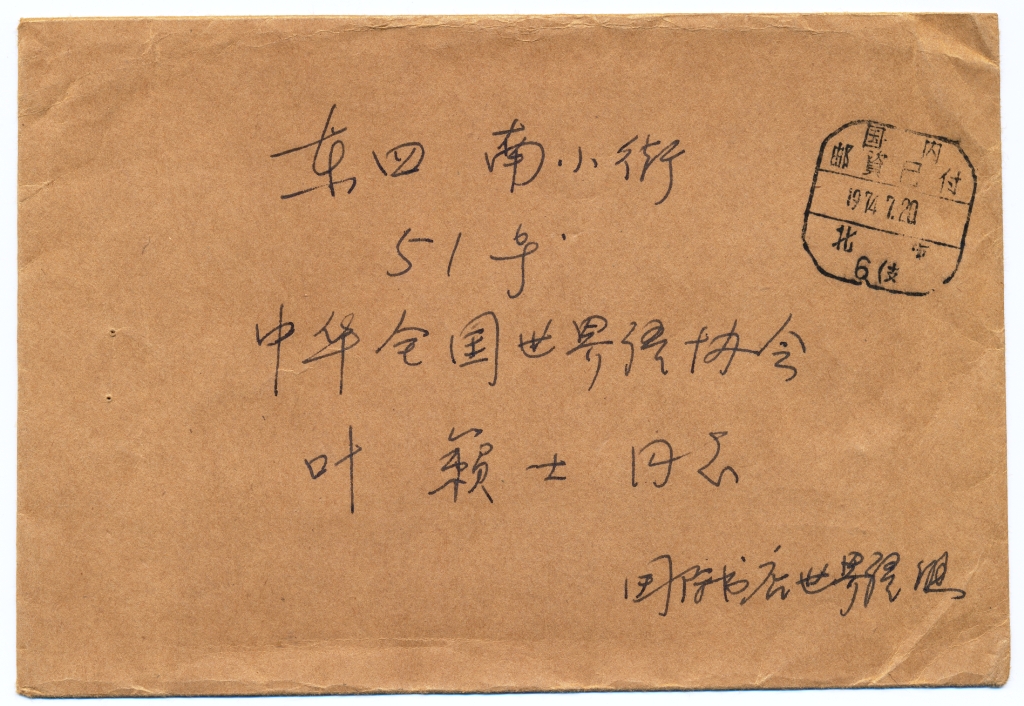 东四 南小街
51号
中华全国世界语协会
叶籁士同志
国际书店世界语组
国内
邮资已付
1974.7.20
北 市
6(支